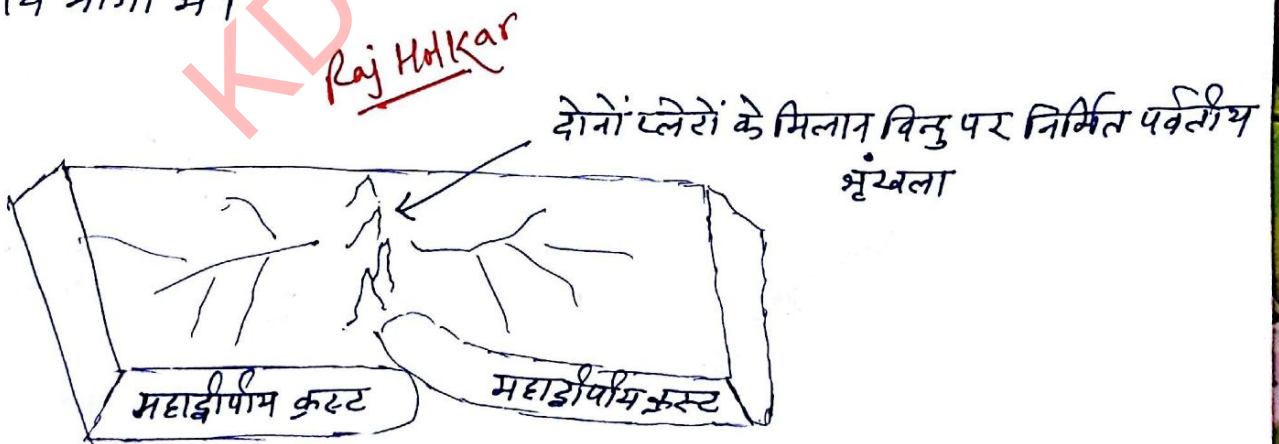 KD
Raj Holkar
दोनों प्लेटों के मिलान विन्दु पर निर्मित पर्वतीय
श्रृंखला
महाद्वीपीय क्रस्ट
महाद्वीपीय क्रस्ट